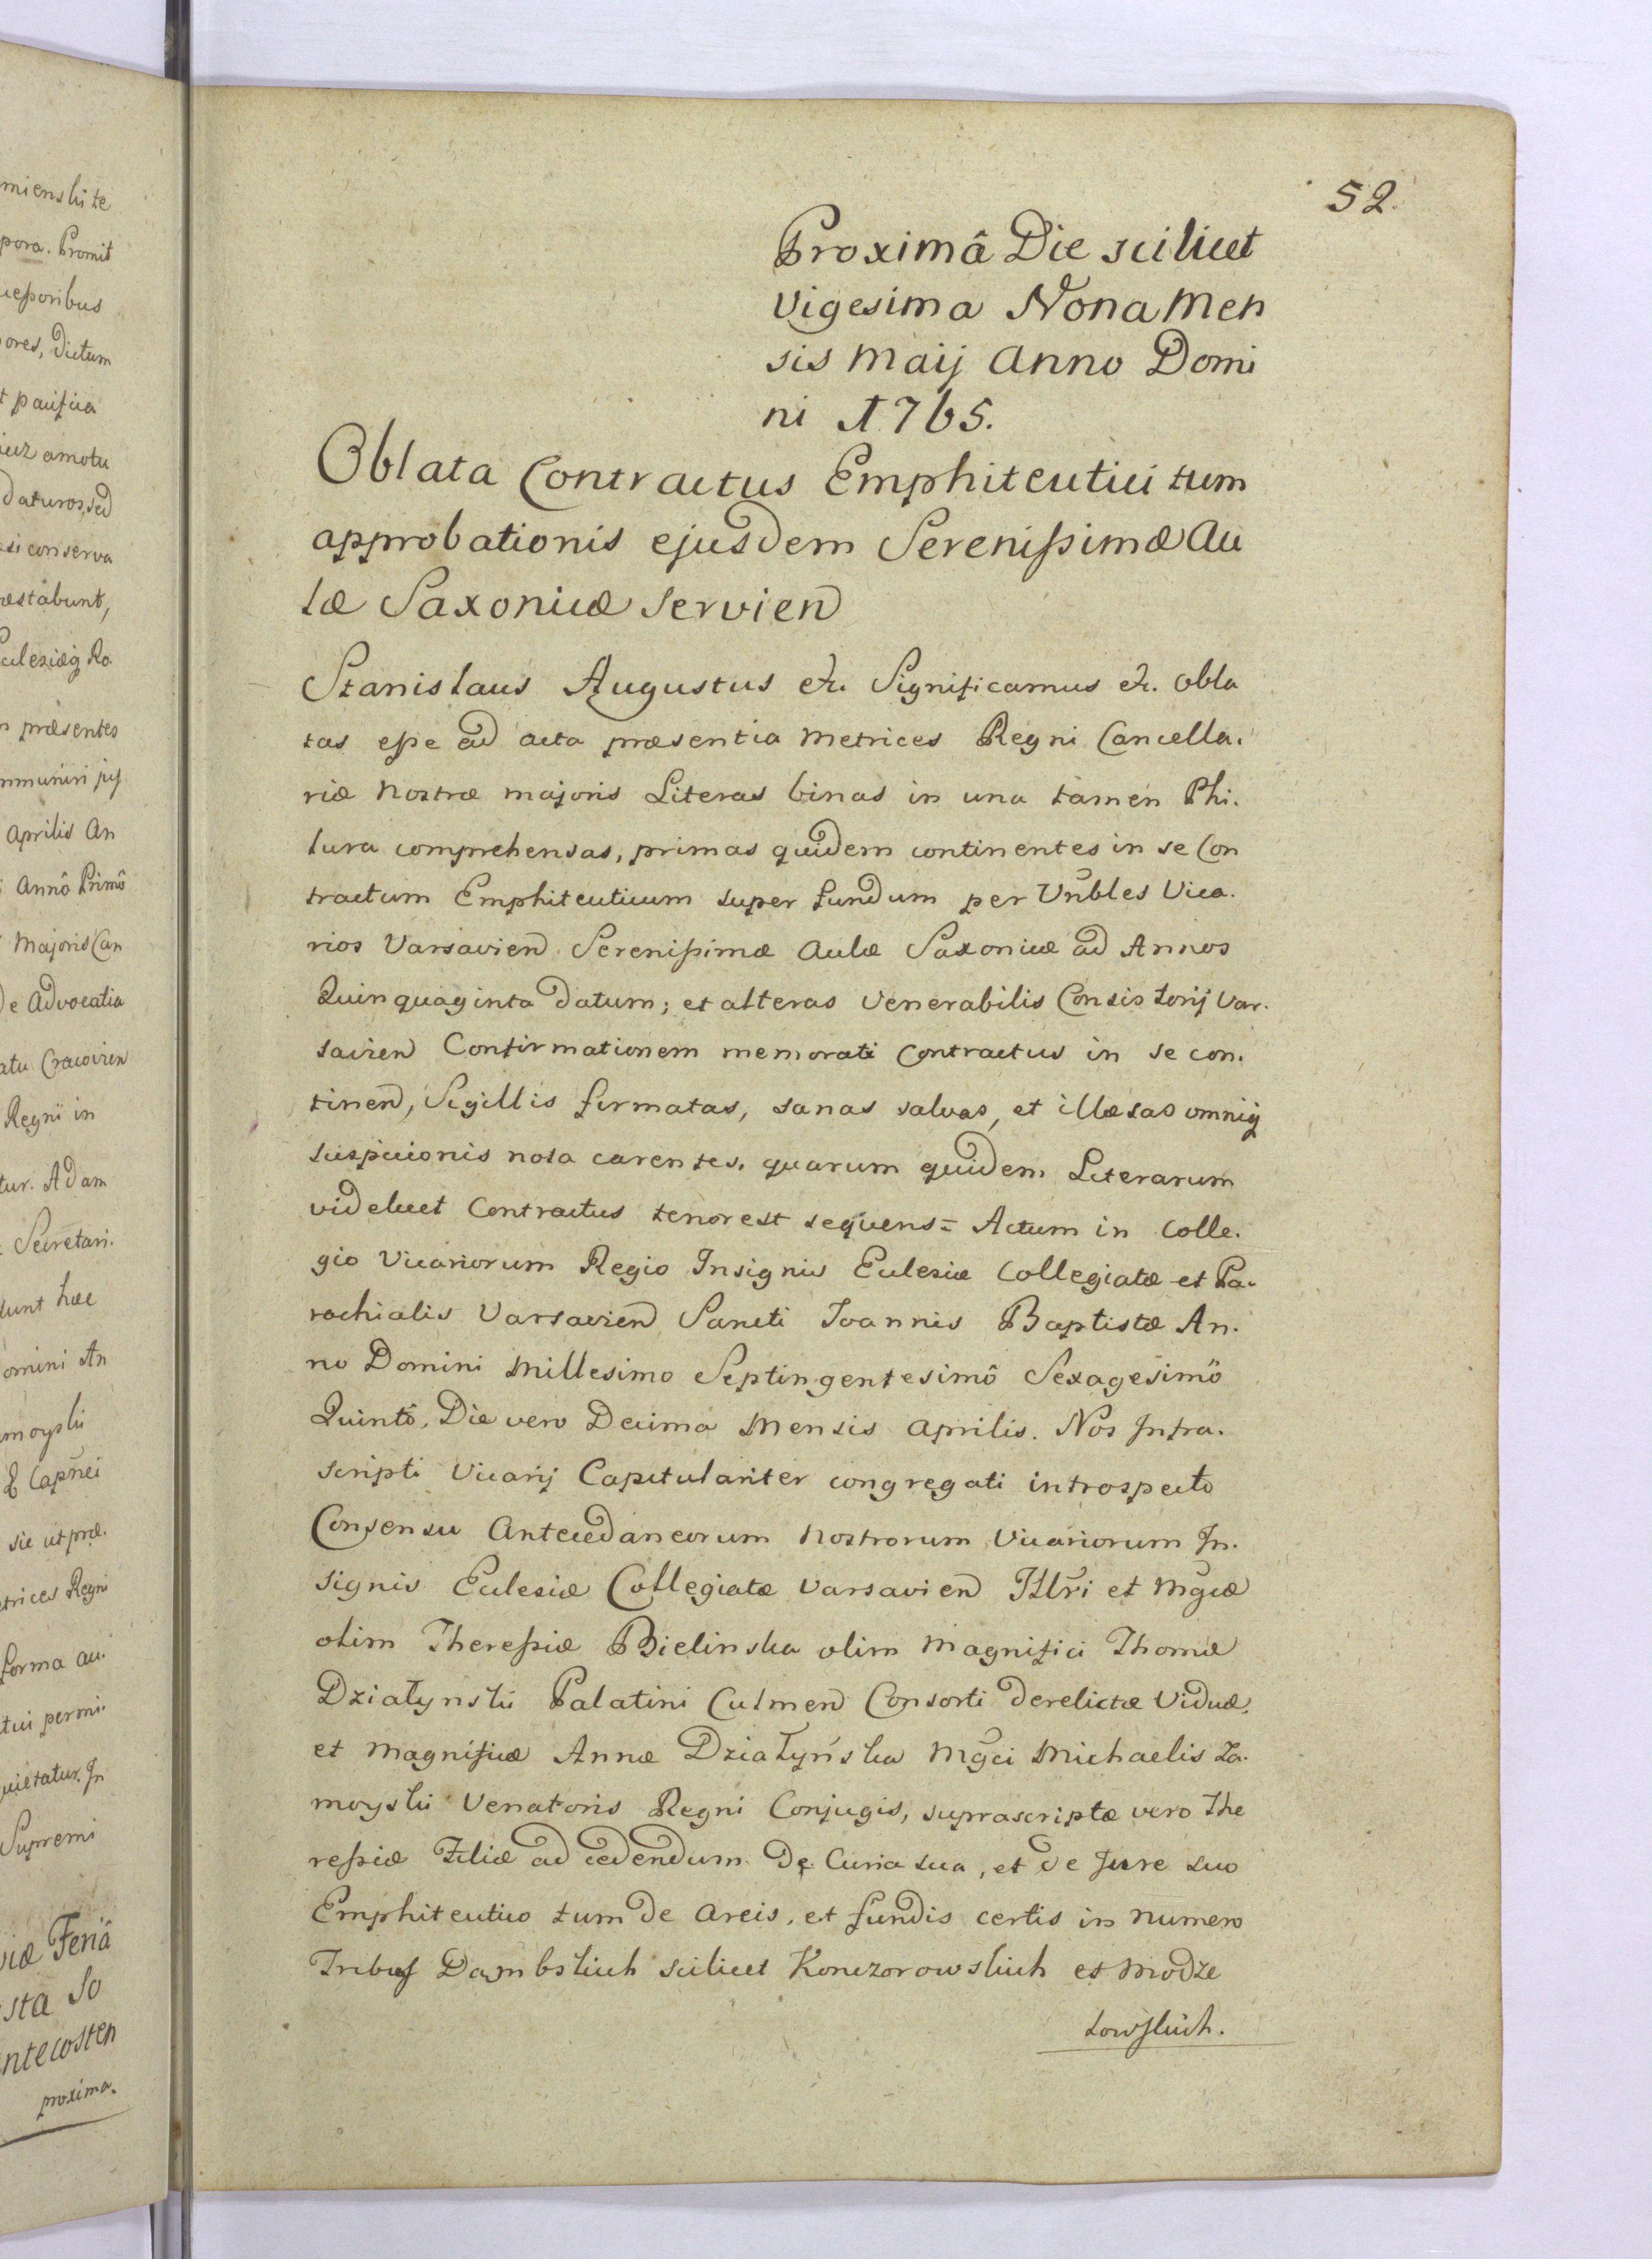 mienski te
pora. Promit
cessoribus
ores, dictum
t pacifica
amotu
daturos, sed
si conserva
ræstabunt,
cclesiæq Ro.
præsentes
mmuniri jus
Aprilis An
Annô Primô
Majoris Can
de Advocatia
atu Cracovien
Regni in
tur. Adam
Secretari.
dunt hæc
omini An
moyski
Capnei
sic ut præ.
trices Regni
forma au.
tui permi.
quietatur. In
Supremi
viæ Feriâ
sta So
ntecosten
proxima.
52.
Proximâ Die scilicet
vigesima Nona Men
sis Maij Anno Domi
ni 1765.
Oblata Contractus Emphiteutici tum
approbationis ejusdem Serenissimæ Au
læ Saxonicæ servien
Stanislaus Augustus etc. Significamus etc. obla
tas esse ad acta præsentia Metrices Regni Cancella.
riæ Nostræ majoris Literas binas in una tamen Phi.
lura comprehensas, primas quidem continentes in se Con
tractum Emphiteuticum super fundum per Vnbles Vica.
rios Varsavien Serenissimæ Aulæ Saxonicæ ad Annos
Quinquaginta datum; et alteras Venerabilis Consistorij Var.
savien Confirmationem memorati Contractus in se con.
tinen, Sigillis firmatas, sanas salvas, et illæsas omniq
suspicionis nota carentes. quarum quidem Literarum
videlicet Contractus tenor est sequens= Actum in Colle.
gio Vicariorum Regio Insignis Eclesiæ Collegiatæ et Pa.
rochialis Varsavien Sancti Joannis Baptistæ An.
no Domini Millesimo Septingentesimô Sexagesimô
Quintô, Die vero Decima Mensis Aprilis. Nos Infra.
scripti Vicarij Capitulariter congregati introspecto
Consensu Antecedaneorum Nostrorum Vicariorum In.
signis Eclesiæ Collegiatæ Varsavien Illri et Mgcæ
olim Theressiæ Bielinska olim Magnifici Thomæ
Działynski Palatini Culmen Consorti derelictæ Viduæ,
et Magnificæ Annæ Działyńska Mgci Michaelis Za.
moyski Venatoris Regni Conjugis, suprascriptæ vero The
ressiæ Filiæ ad cedendum De Curia sua, et de Jure suo
Emphiteutico tum de Areis, et fundis certis in numero
Tribus Dambskich scilicet Konczorowskich et Modze
lowskich.